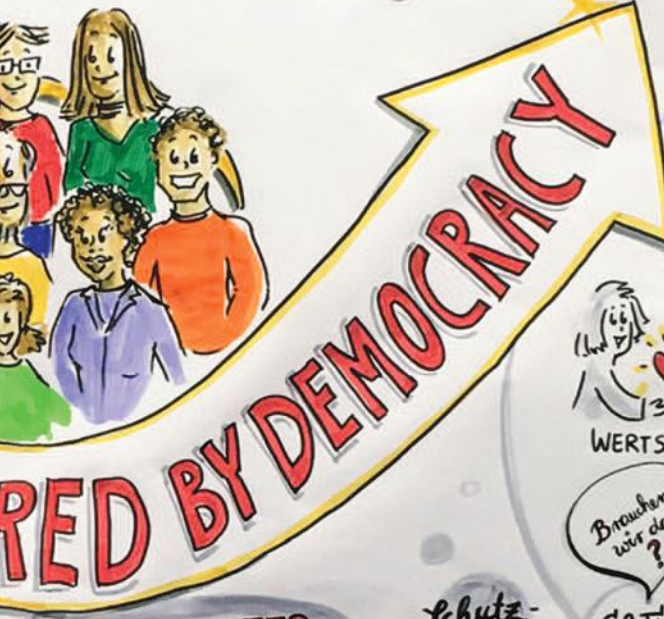 RED BY DEMOCRACY
WERTS
Brauchen
wir da
?
Schutz-